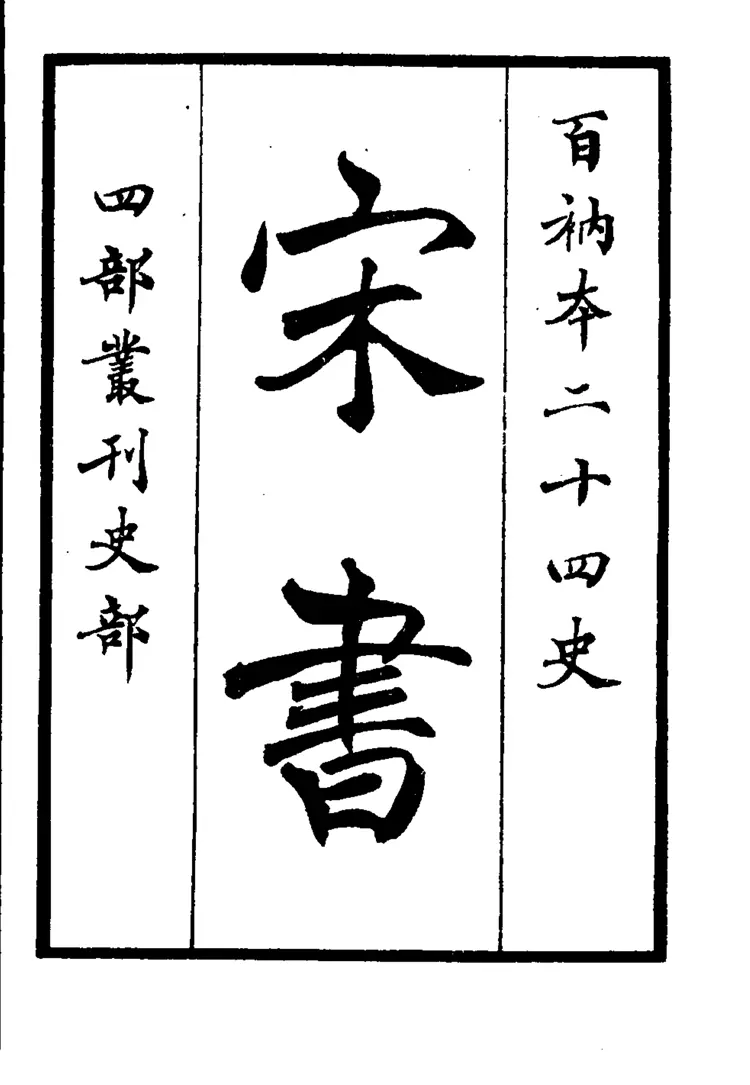 百衲本二十四史
宋書
四部叢刊史部